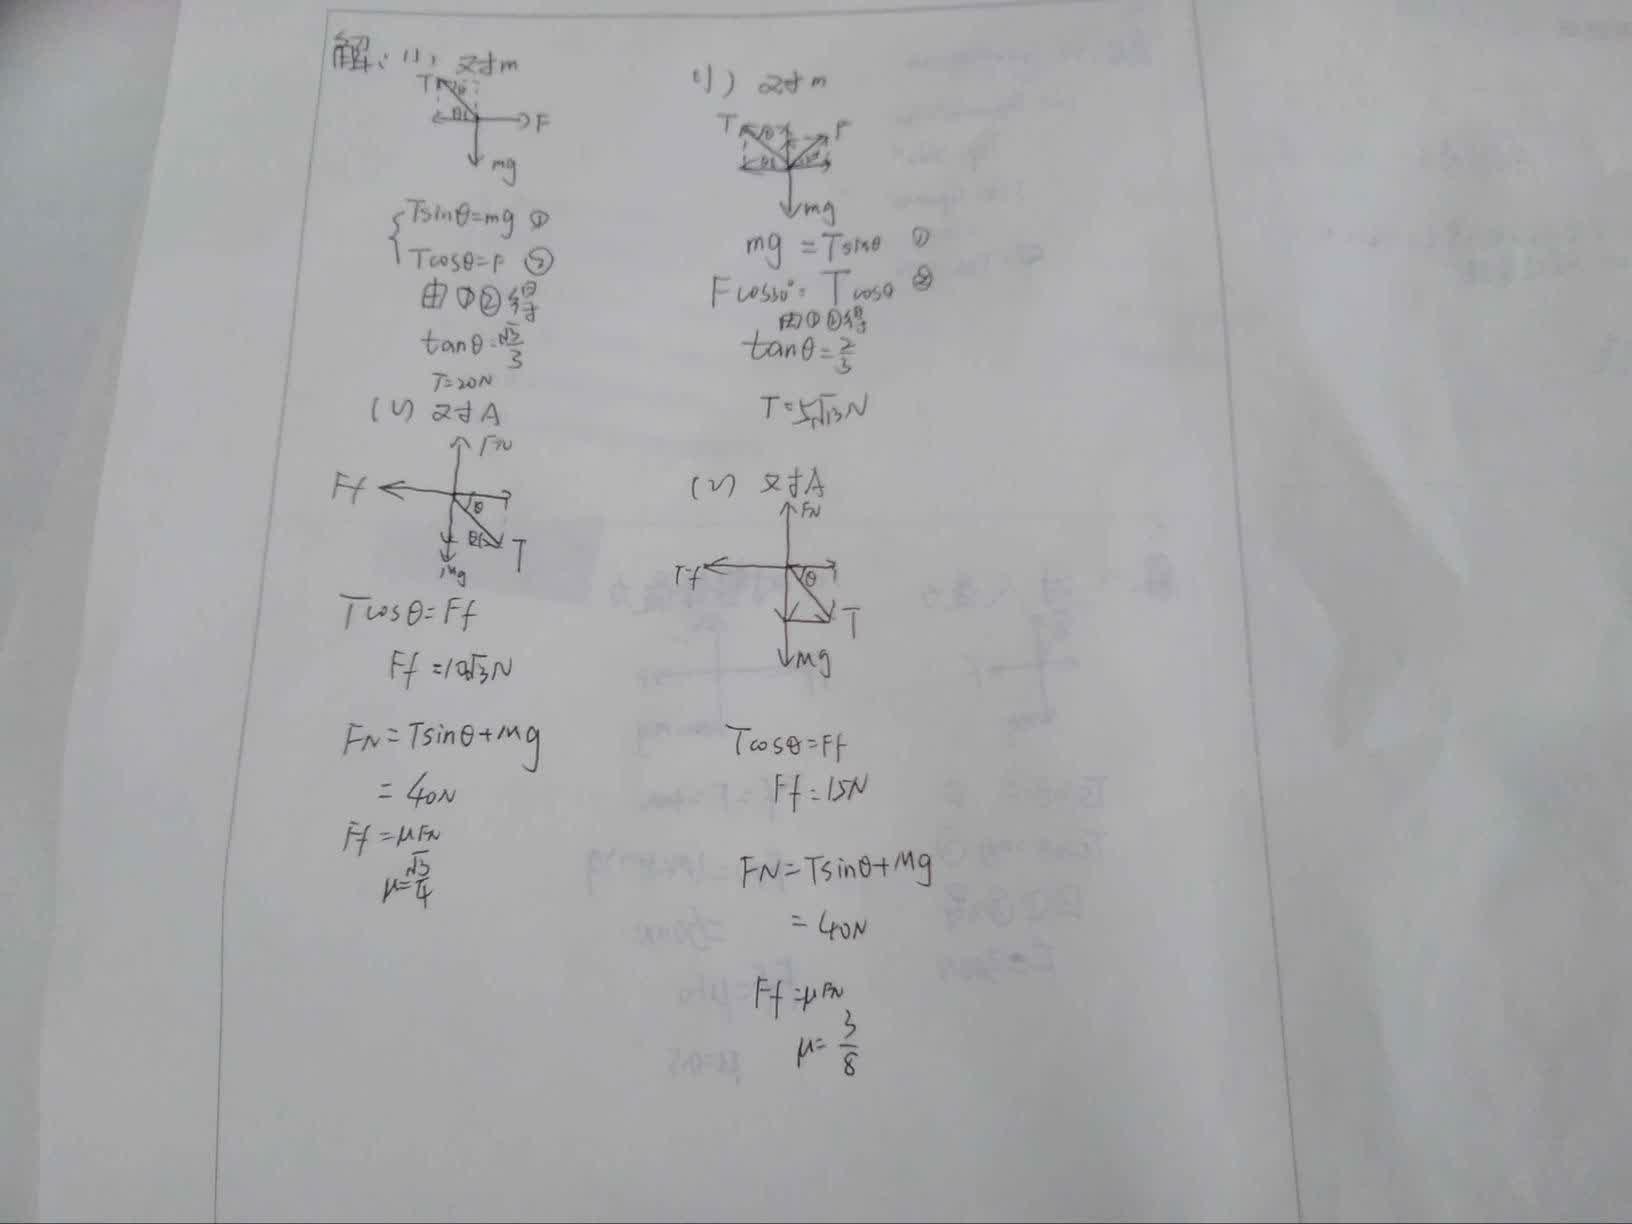 解:(1)、对m
T
θ
F
mg
Tsinθ=mg ①
Tcosθ=F ②
由①②得
tanθ=√3/3
T=20N
(2) 对A
FN
Ff
θ
T
Mg
Tcosθ=Ff
Ff=10√3N
FN=Tsinθ+Mg
=40N
Ff=μFN
μ=√3/4
(1) 对m
T
θ
F
mg
mg=Tsinθ ①
Fcos30°=Tcosθ ②
由①②得
tanθ=2/3
T=5√13N
(2) 对A
FN
Ff
θ
T
Mg
Tcosθ=Ff
Ff=15N
FN=Tsinθ+Mg
=40N
Ff=μFN
μ=3/8